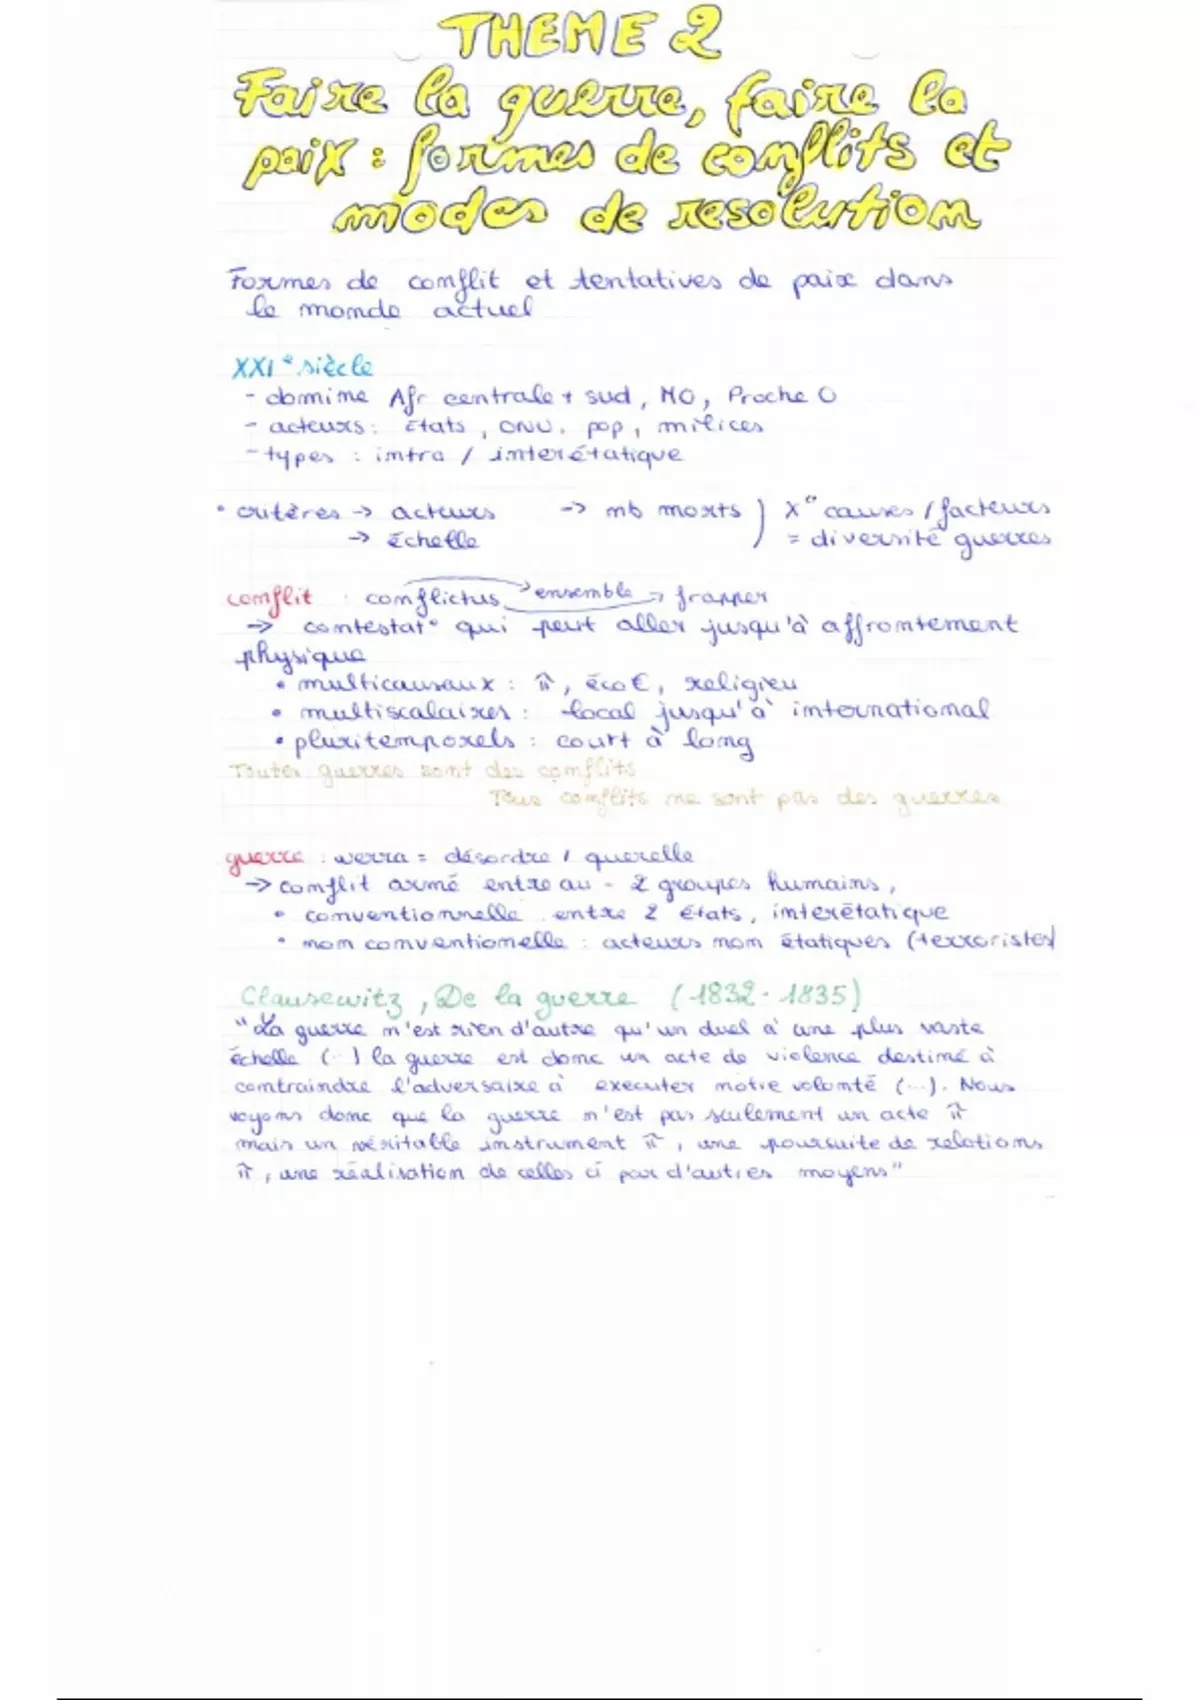 THEME 2
Faire la guerre, faire la
paix : formes de conflits et
modes de resolution
Formes de conflit et tentatives de paix dans
le monde actuel
XXI° siècle
- domine Afr centrale + sud, MO, Proche O
- acteurs : Etats, ONU, pop, milices
- types : intra / interétatique
• critères → acteurs → nb morts ) X° causes / facteurs
→ échelle = diversité guerres
conflit : conflictus ensemble → frapper
→ contestat° qui peut aller jusqu'à affrontement
physique
• multicausaux : π, éco€, religieu
• multiscalaires : local jusqu'à international
• pluritemporels : court à long
Toutes guerres sont des conflits
Tous conflits ne sont pas des guerres
guerre : werra = désordre / querelle
→ conflit armé entre au - 2 groupes humains,
• conventionnelle entre 2 états, interétatique
• non conventionelle : acteurs non étatiques (terroristes)
Clausewitz, De la guerre (1832-1835)
"La guerre n'est rien d'autre qu'un duel à une plus vaste
échelle (...) la guerre est donc un acte de violence destiné à
contraindre l'adversaire à executer notre volonté (...). Nous
voyons donc que la guerre n'est pas seulement un acte π
mais un véritable instrument π, une poursuite de relations
π, une réalisation de celles ci par d'autres moyens"